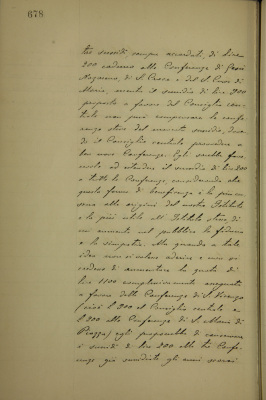 678
tri sussidi sempre accordati, di Lire
200 cadauno alle Conferenze di Gesù
Nazareno, di S. Croce e del S. Cuore di
Maria, mentre il sussidio di lire 200
proposto a favore del Consiglio cen-
trale non può compensare le confe-
renze stesse del mancato sussidio, doven-
do il Consiglio centrale provvedere a
ben nove Conferenze. Egli sarebbe favo-
revole ad estendere il sussidio di lire 200
a tutte le Conferenze, considerando che
questa forma di beneficenza è la più con-
sona alle origini del nostro Istituto
e la più utile all'Istituto stesso, di
cui aumenta nel pubblico la fiducia
e la simpatia. Che quando a tale
idea non si volesse aderire e non si
credesse di aumentare la quota di
lire 1100 complessivamente assegnata
a favore delle Conferenze di S. Vincenzo
(cioè £ 200 al Consiglio centrale e
£ 200 alla Conferenza di S. Maria di
Piazza) egli proporrebbe di conservare
i sussidi di lire 200 alle tre Confe-
renze già sussidiate gli anni scorsi